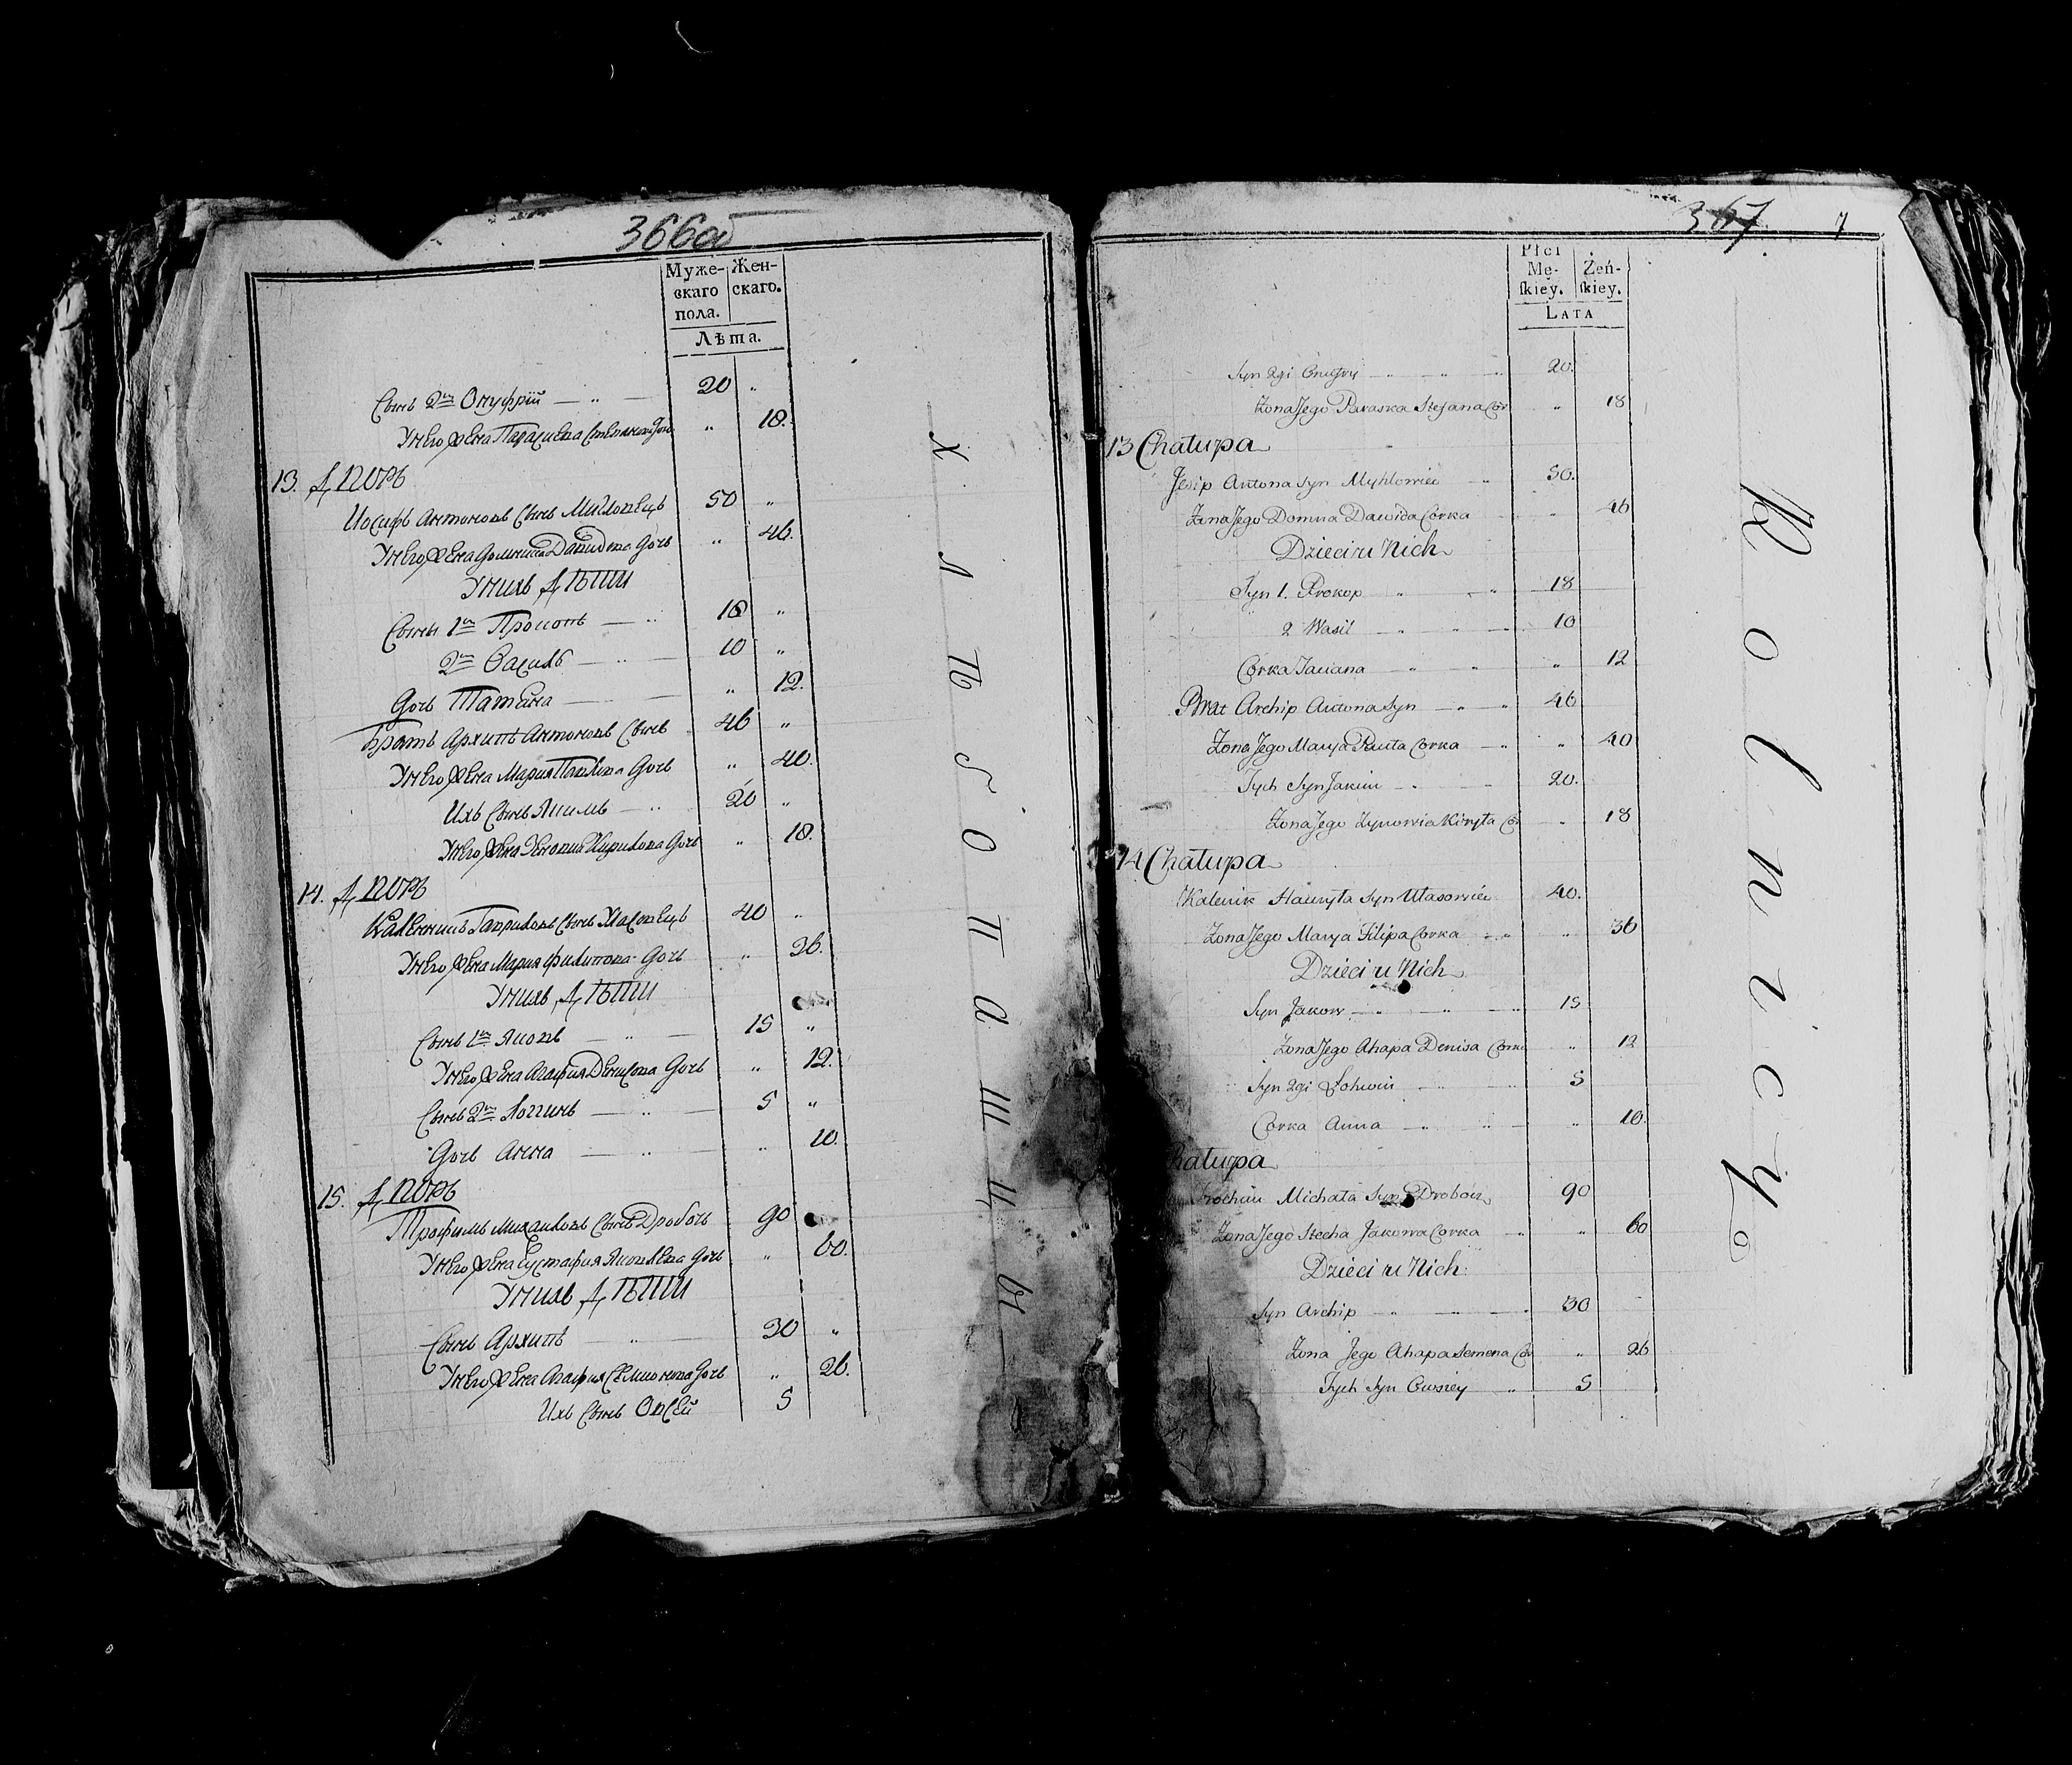 366об
Муже- Жен-
скаго скаго.
пола.
Лѣта.
Сынъ 2й Онуфрій — " — 20 "
У него жена Параскева Степанова Дочь " 18.
13. Дворъ
Иосифъ Антоновъ Сынъ Михловецъ 50 "
У него жена Домникия Давидова Дочь " 46.
У нихъ Дѣти
Сынъ 1й Прокопъ — " 18 "
2й Василь — " — 10 "
Дочь Татьяна — — " 12.
Братъ Архипъ Антоновъ Сынъ 46 "
У него жена Мария Павлова Дочь " 40.
Ихъ Сынъ Якимъ — " 20 "
У него жена Зеновия Кирилова Дочь " 18.
14. Дворъ
Каленикъ Гавриловъ Сынъ Власовецъ 40 "
У него жена Мария Филипова Дочь " 36.
У нихъ Дѣти
Сынъ 1й Яковъ — " — 15 "
У него жена Агафия Денисова Дочь " 12.
Сынъ 2й Логинъ — " — 5 "
Дочь Анна — " — " 10.
15. Дворъ
Трофимъ Михаиловъ Сынъ Дроботъ 90
У него жена Еустафия Яковлева Дочь " 60.
У нихъ Дѣти
Сынъ Архипъ — " — 30 "
У него жена Агафия Семионова Дочь " 26.
Ихъ Сынъ Овсей 5
Хлѣбопашцы
367 7
Płci
Mę- Żeń-
skiey. skiey.
LATA
Syn 2gi Onufry — " — " 20.
Żona Jego Paraska Stefana Cór " 18
13 Chałupa
Jesip Antona Syn Myhlowiec " 50.
Żona Jego Domna Dawida Córka " 46
Dzieci u Nich
Syn 1. Prokop " — " 18
2 Wasil — " — " — 10
Córka Taciana — " " " 12
Brat Archip Antona Syn — " — " 46
Żona Jego Marya Pawła Corka — " " 40
Tych Syn Jakim — " — " 20.
Żona Jego Zynowia Kiryła Cór " 18
14 Chałupa
Kalenik Hawryła Syn Ułasowiec 40.
Żona Jego Marya Filipa Corka — " " 36
Dzieci u Nich
Syn Jakow — " — " — " 15
Żona Jego Ahapa Denisa Corka " 12
Syn 2gi Łohwin — " — " 5
Corka Anna — " " — " 10.
hałupa
rochim Michała Syn Drobot 90
Żona Jego Stecha Jakowa Corka " " 60
Dzieci u Nich
Syn Archip — " — " — " 30
Żona Jego Ahapa Semena Cór " 26
Tych Syn Owsiey " 5
Rolnicy